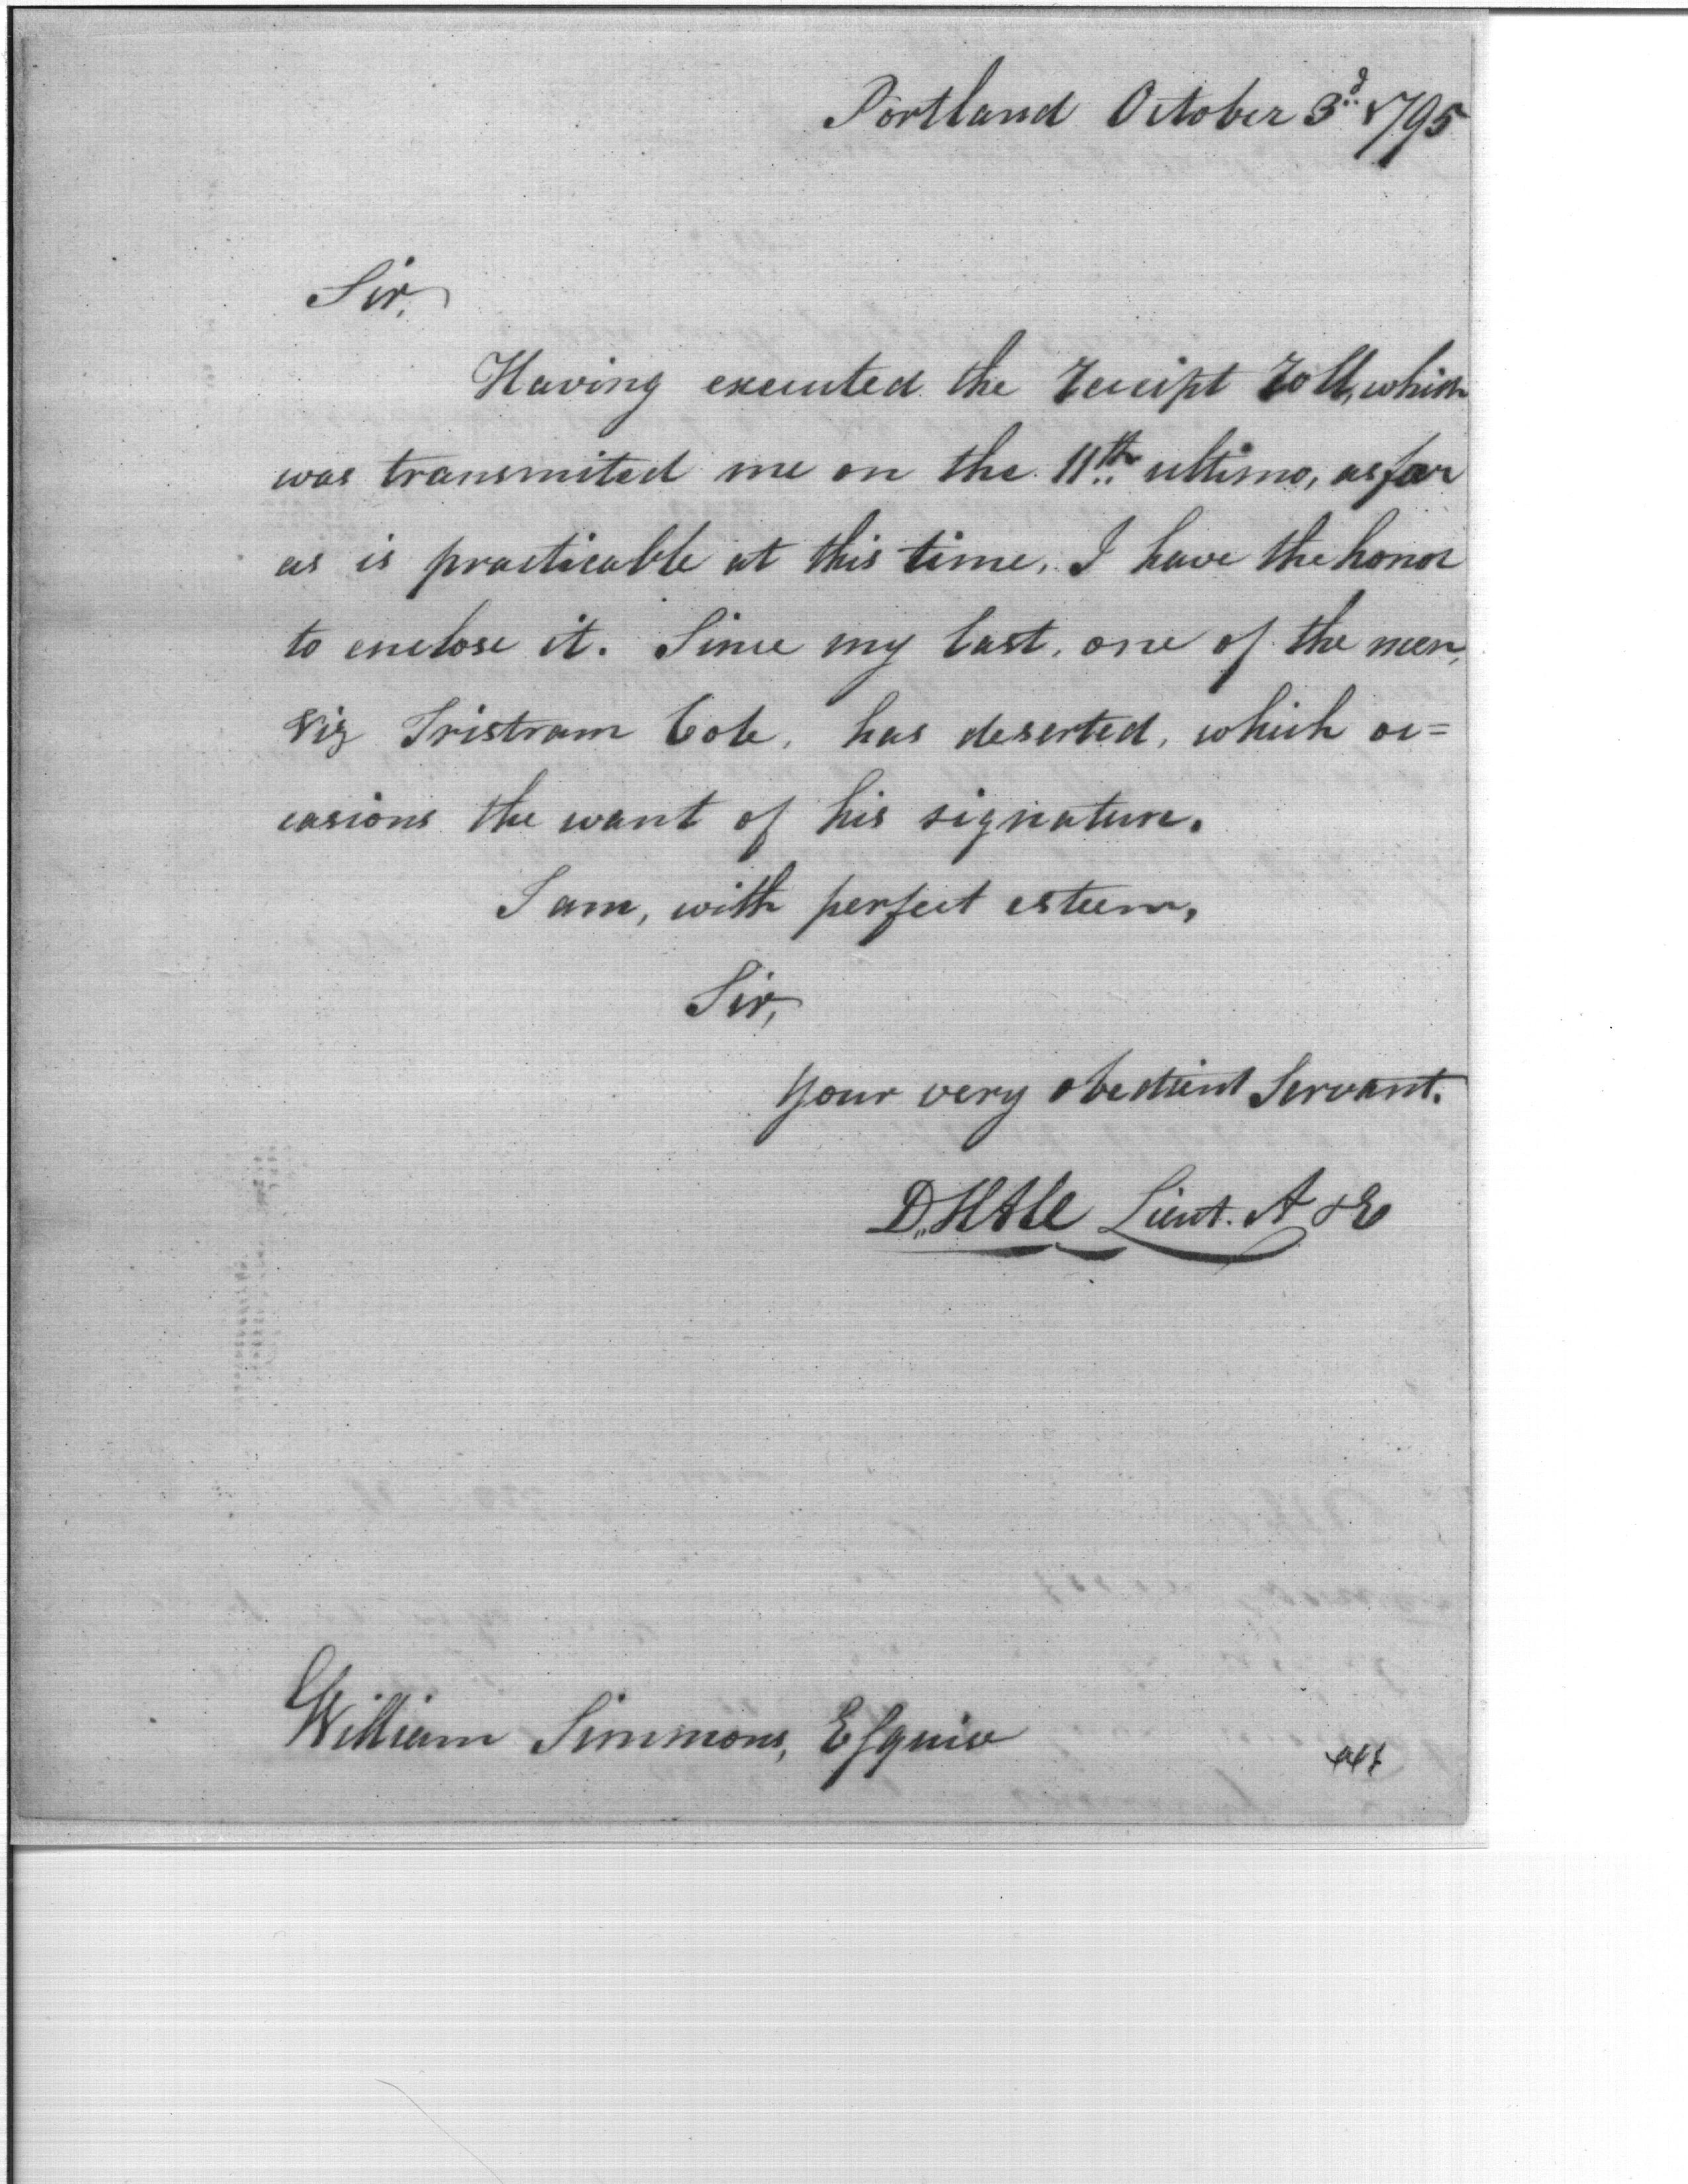 Portland October 3d 1795
Sir,
Having executed the receipt roll, which
was transmited me on the 11th ultimo, as far
as is practicable at this time, I have the honor
to enclose it. Since my last, one of the men,
Viz Tristram Cole, has deserted, which oc=
casions the want of his signature.
I am, with perfect esteem,
Sir,
your very obedient Servant.
D. Hale Lieut. A & E
William Simmons, Esquire